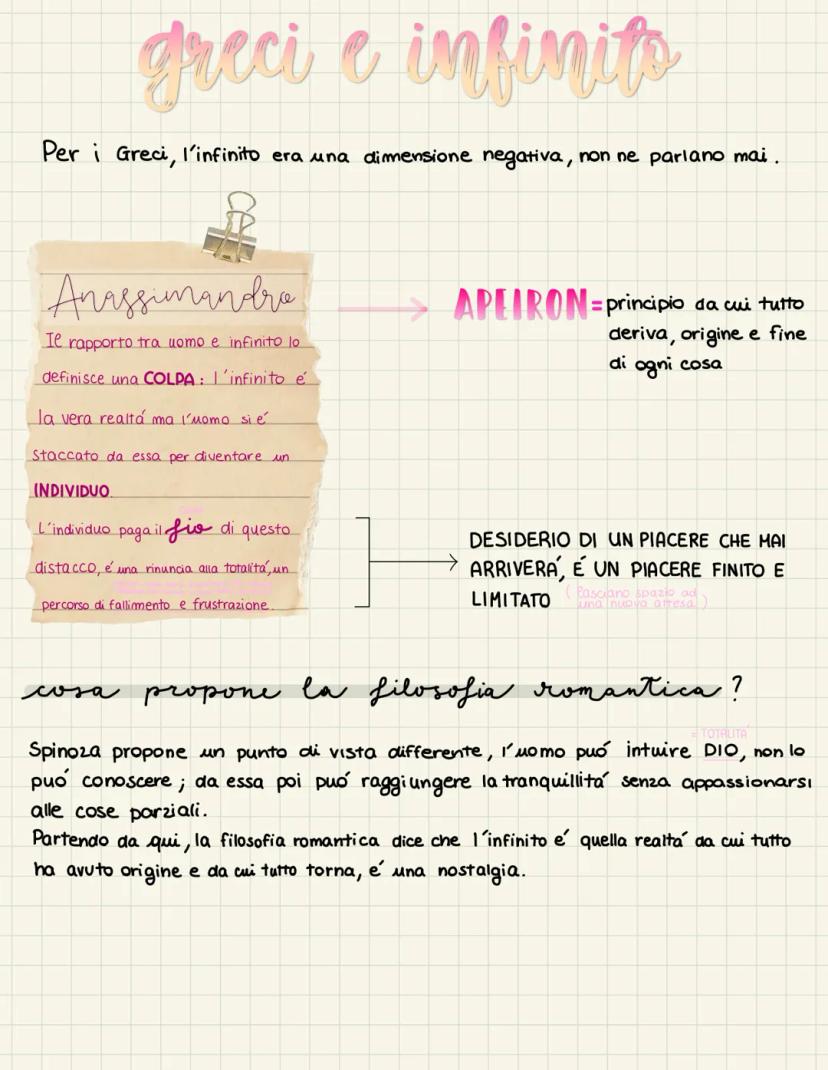 greci e infinito
Per i Greci, l'infinito era una dimensione negativa, non ne parlano mai.
Anassimandro
Il rapporto tra uomo e infinito lo
definisce una COLPA: l'infinito é
la vera realtá ma l'uomo si é
staccato da essa per diventare un
INDIVIDUO
L'individuo paga il fio di questo
distacco, é una rinuncia alla totalitá, un
percorso di fallimento e frustrazione.
APEIRON = principio da cui tutto
deriva, origine e fine
di ogni cosa
DESIDERIO DI UN PIACERE CHE MAI
ARRIVERÁ, É UN PIACERE FINITO E
LIMITATO (lasciano spazio ad
una nuova attesa)
cosa propone la filosofia romantica?
= TOTALITÁ
Spinoza propone un punto di vista differente, l'uomo puó intuire DIO, non lo
puó conoscere; da essa poi puó raggiungere la tranquillitá senza appassionarsi
alle cose parziali.
Partendo da qui, la filosofia romantica dice che l'infinito é quella realtá da cui tutto
ha avuto origine e da cui tutto torna, é una nostalgia.